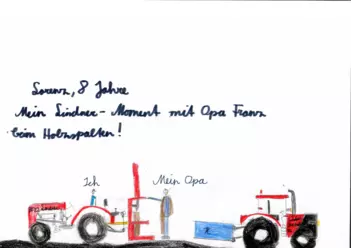 Lorenz, 8 Jahre
Mein Lindner-Moment mit Opa Franz
beim Holzspalten!
Ich
Mein Opa